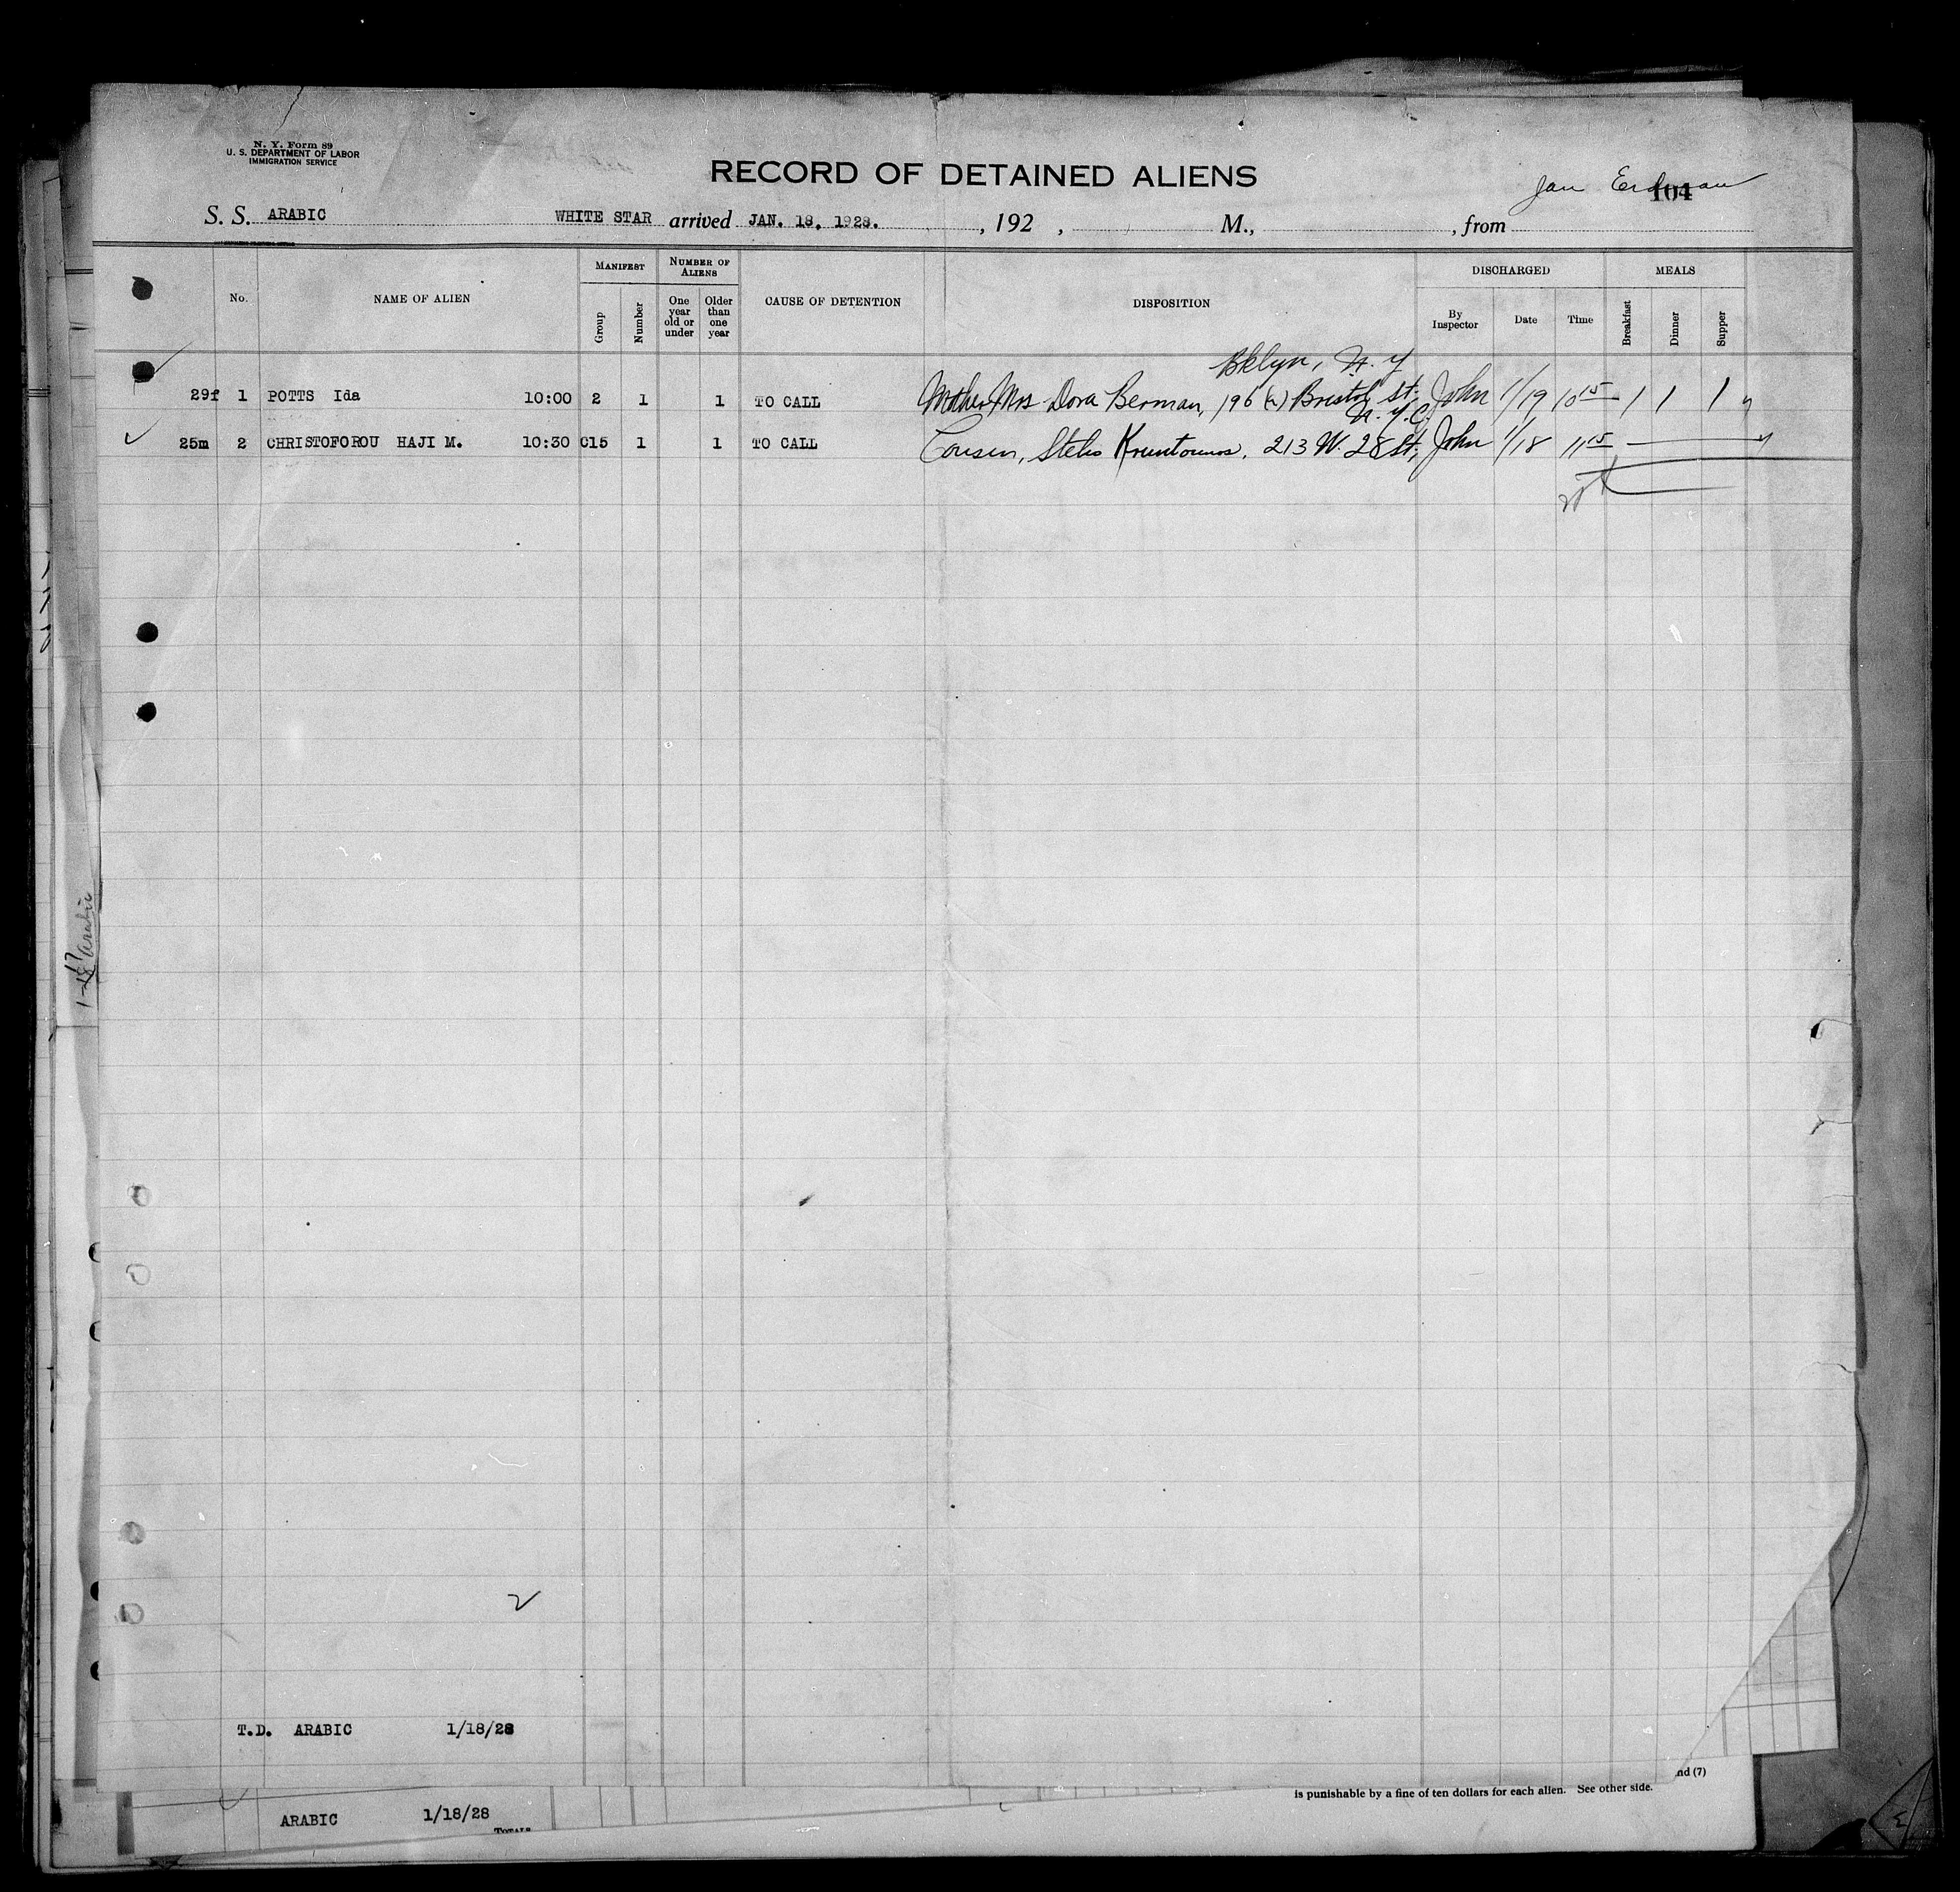 N. Y. Form 89
U. S. DEPARTMENT OF LABOR
IMMIGRATION SERVICE
RECORD OF DETAINED ALIENS
Jan
104
S. S. ARABIC WHITE STAR arrived JAN. 18, 1928. , 192 , M., , from
No. NAME OF ALIEN MANIFEST Group Number NUMBER OF ALIENS One year old or under Older than one year CAUSE OF DETENTION DISPOSITION DISCHARGED By Inspector Date Time MEALS Breakfast Dinner Supper
Bklyn, N. Y
29f 1 POTTS Ida 10:00 2 1 1 TO CALL Mother Mrs Dora Berman, 196 (a) Bristol St; John 1/19 10 15 1 1 1
N. Y. C.
25m 2 CHRISTOFOROU HAJI M. 10:30 C15 1 1 TO CALL Cousin, 213 W. 28 St, John 1/18 11 15
1-18 Arabic
2
T.D. ARABIC 1/18/28
nd (7)
is punishable by a fine of ten dollars for each alien. See other side.
ARABIC 1/18/28
TOTALS